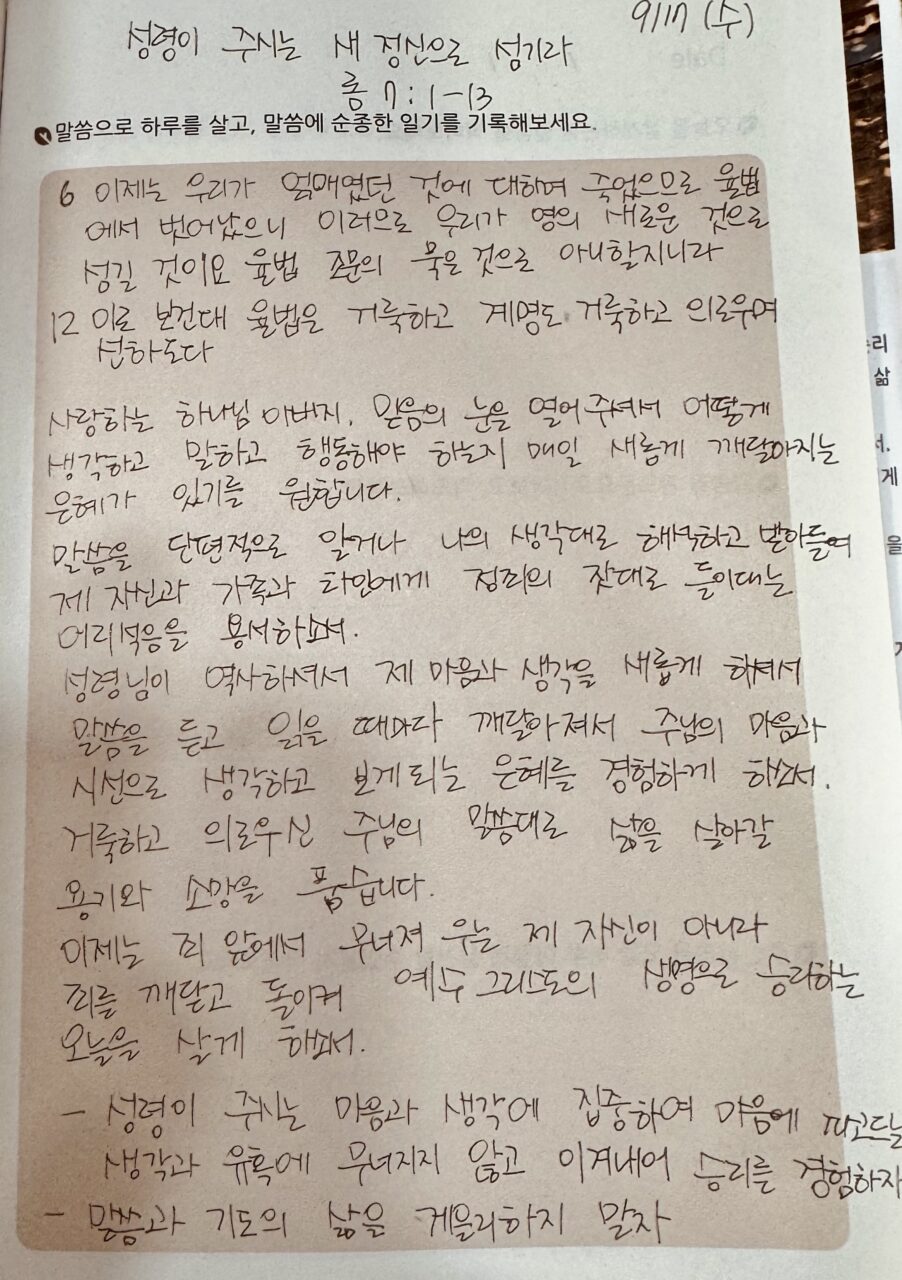 9/17 (수)
성령이 주시는 새 정신으로 섬기라
롬 7:1-13
말씀으로 하루를 살고, 말씀에 순종한 일기를 기록해보세요.
6 이제는 우리가 얽매였던 것에 대하여 죽었으므로 율법
에서 벗어났으니 이러므로 우리가 영의 새로운 것으로
섬길 것이요 율법 조문의 묵은 것으로 아니할지니라
12 이로 보건대 율법은 거룩하고 계명도 거룩하고 의로우며
선하도다
사랑하는 하나님 아버지, 믿음의 눈을 열어주셔서 어떻게
생각하고 말하고 행동해야 하는지 매일 새롭게 깨달아지는
은혜가 있기를 원합니다.
말씀을 단편적으로 알거나 나의 생각대로 해석하고 받아들여
제 자신과 가족과 타인에게 정죄의 잣대로 들이대는
어리석음을 용서하소서.
성령님이 역사하셔서 제 마음과 생각을 새롭게 하셔서
말씀을 듣고 읽을 때마다 깨달아져서 주님의 마음과
시선으로 생각하고 보게되는 은혜를 경험하게 하소서.
거룩하고 의로우신 주님의 말씀대로 삶을 살아갈
용기와 소망을 품습니다.
이제는 죄 앞에서 무너져 우는 제 자신이 아니라
죄를 깨닫고 돌이켜 예수 그리스도의 생명으로 승리하는
오늘을 살게 하소서.
- 성령이 주시는 마음과 생각에 집중하여 마음에 파고드는
생각과 유혹에 무너지지 않고 이겨내어 승리를 경험하자
- 말씀과 기도의 삶을 게을리하지 말자
리
삶
게
을